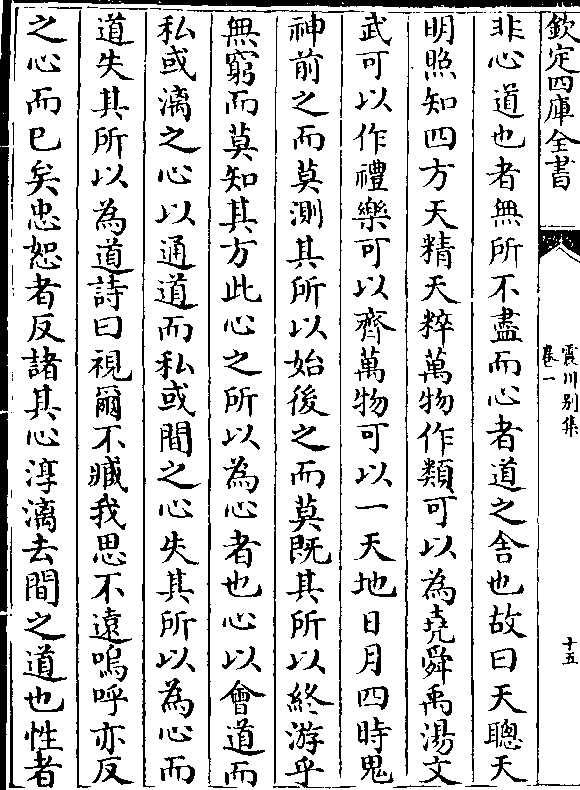 欽定四庫全書
震川别集
卷一
十五
非心道也者無所不盡而心者道之舎也故曰天聰天
明照知四方天精天粹萬物作類可以為堯舜禹湯文
武可以作禮樂可以齊萬物可以一天地日月四時鬼
神前之而莫測其所以始後之而莫既其所以終游乎
無窮而莫知其方此心之所以為心者也心以會道而
私或漓之心以通道而私或間之心失其所以為心而
道失其所以為道詩曰視爾不臧我思不遠嗚呼亦反
之心而已矣忠恕者反諸其心淳漓去間之道也性者